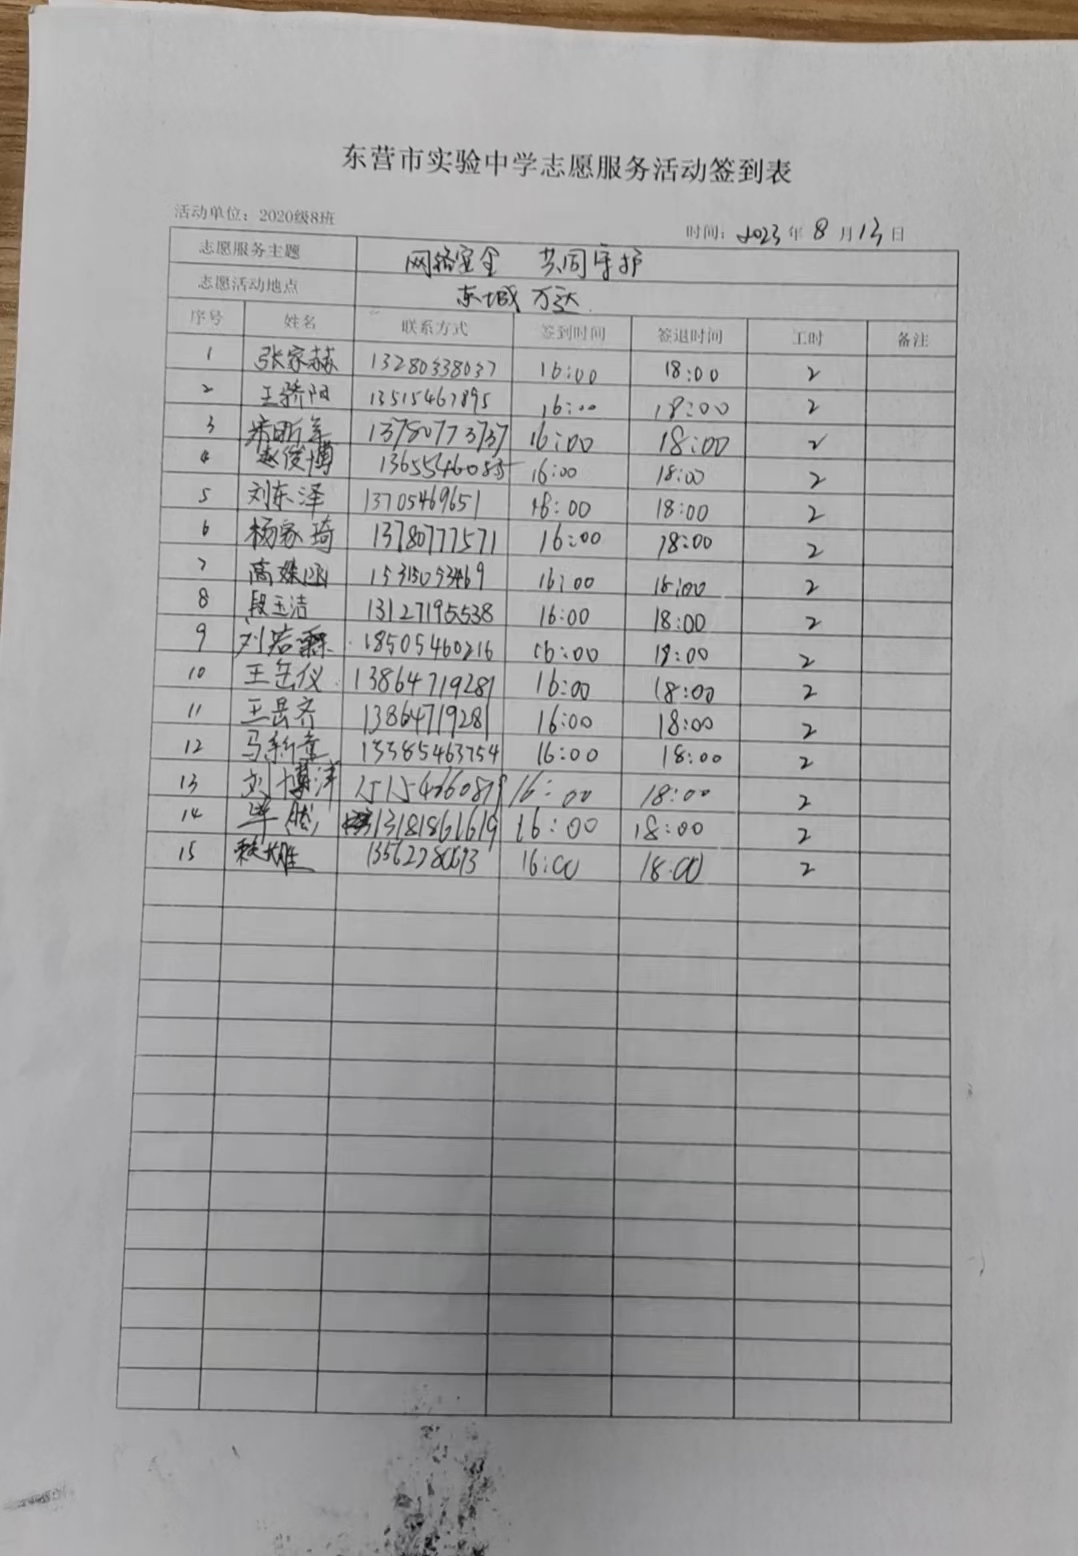 东营市实验中学志愿服务活动签到表
活动单位：2020级8班 时间：2023年8月13日
志愿服务主题 网络安全 共同守护
志愿活动地点 东城万达
序号 姓名 联系方式 签到时间 签退时间 工时 备注
1 张家赫 13280338037 16:00 18:00 2
2 王骄阳 13515467895 16:00 18:00 2
3 13780773737 16:00 18:00 2
4 赵俊博 13655546085 16:00 18:00 2
5 刘东泽 13705469651 16:00 18:00 2
6 杨家琦 13780777571 16:00 18:00 2
7 高姝涵 15315093469 16:00 18:00 2
8 段玉洁 13127195538 16:00 18:00 2
9 刘若霖 18505460216 16:00 18:00 2
10 王岳仪 13864719281 16:00 18:00 2
11 王岳齐 13864719281 16:00 18:00 2
12 马新童 15385463754 16:00 18:00 2
13 刘博洋 16:00 18:00 2
14 13181861619 16:00 18:00 2
15 16:00 18:00 2